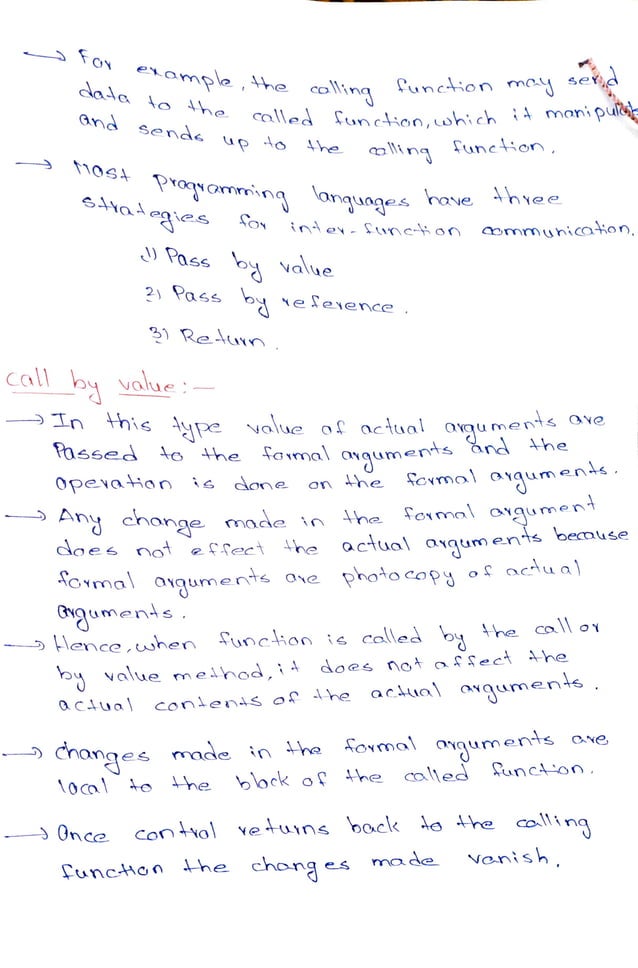 → For example, the calling function may send
data to the called function, which it manipulat
and sends up to the calling function.
→ Most programming languages have three
strategies for inter-function communication.
1) Pass by value
2) Pass by reference.
3) Return.
Call by value:-
→ In this type value of actual arguments are
Passed to the formal arguments and the
operation is done on the formal arguments.
→ Any change made in the formal argument
does not effect the actual arguments because
formal arguments are photocopy of actual
arguments.
→ Hence, when function is called by the call or
by value method, it does not affect the
actual contents of the actual arguments.
→ Changes made in the formal arguments are
local to the block of the called function.
→ Once control returns back to the calling
function the changes made vanish.